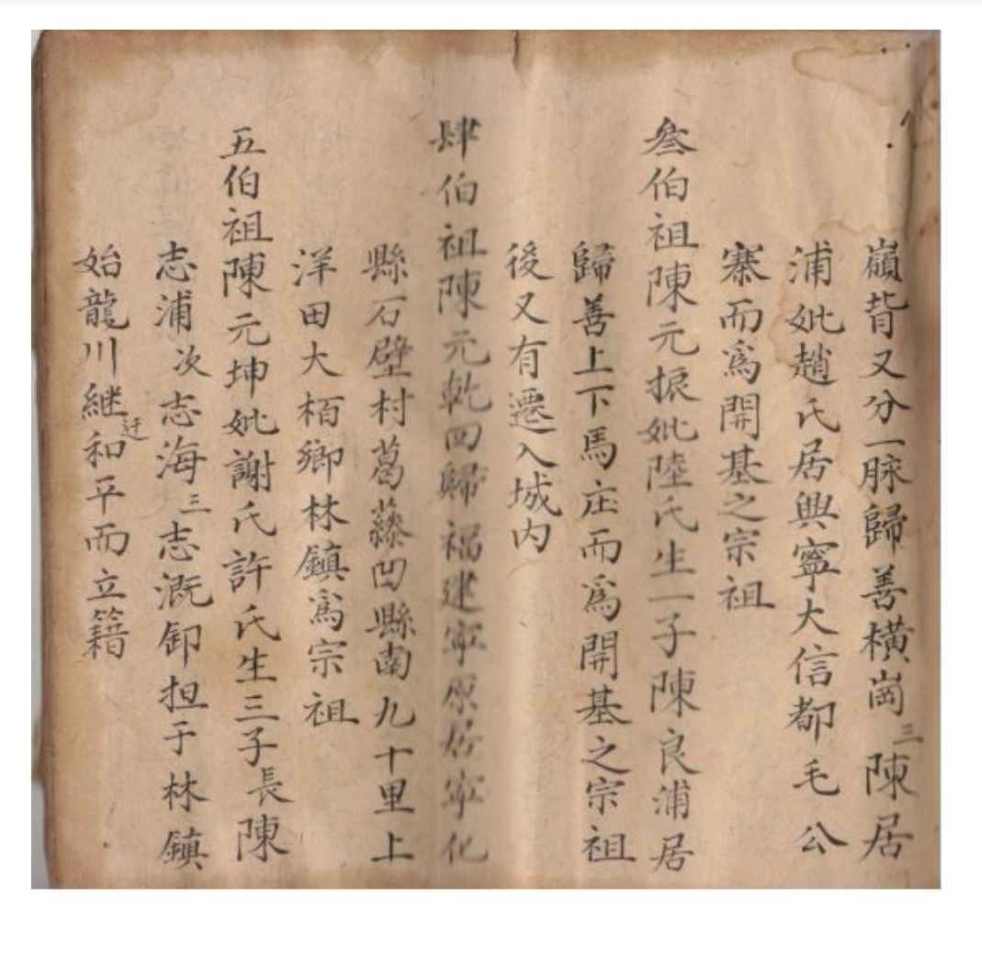 嶺背又分一脉歸善橫崗三陳居
浦妣趙氏居興寧大信都毛公
寨而爲開基之宗祖
叁伯祖陳元振妣陸氏生一子陳良浦居
歸善上下馬庄而爲開基之宗祖
後又有遷入城内
肆伯祖陳元乾回歸福建寧原居寧化
縣石壁村葛藤凹縣南九十里上
洋田大栢鄉林鎮爲宗祖
五伯祖陳元坤妣謝氏許氏生三子長陳
志浦次志海三志溉卸担于林鎮
始龍川継迁和平而立籍